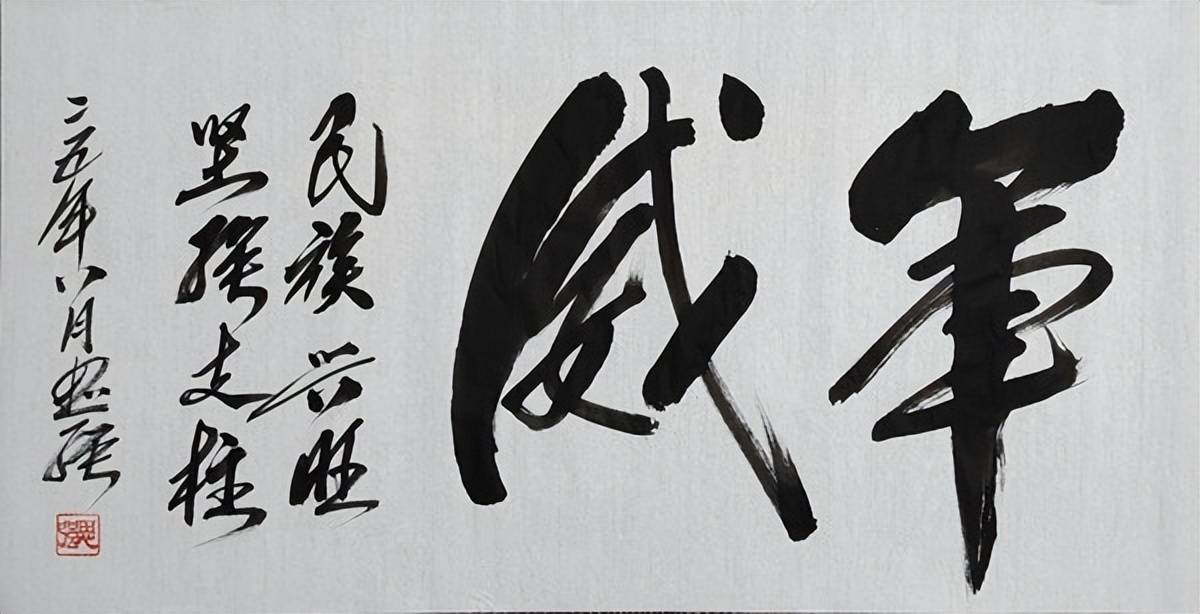 軍威
民族兴旺
坚强支柱
二五年八月思强